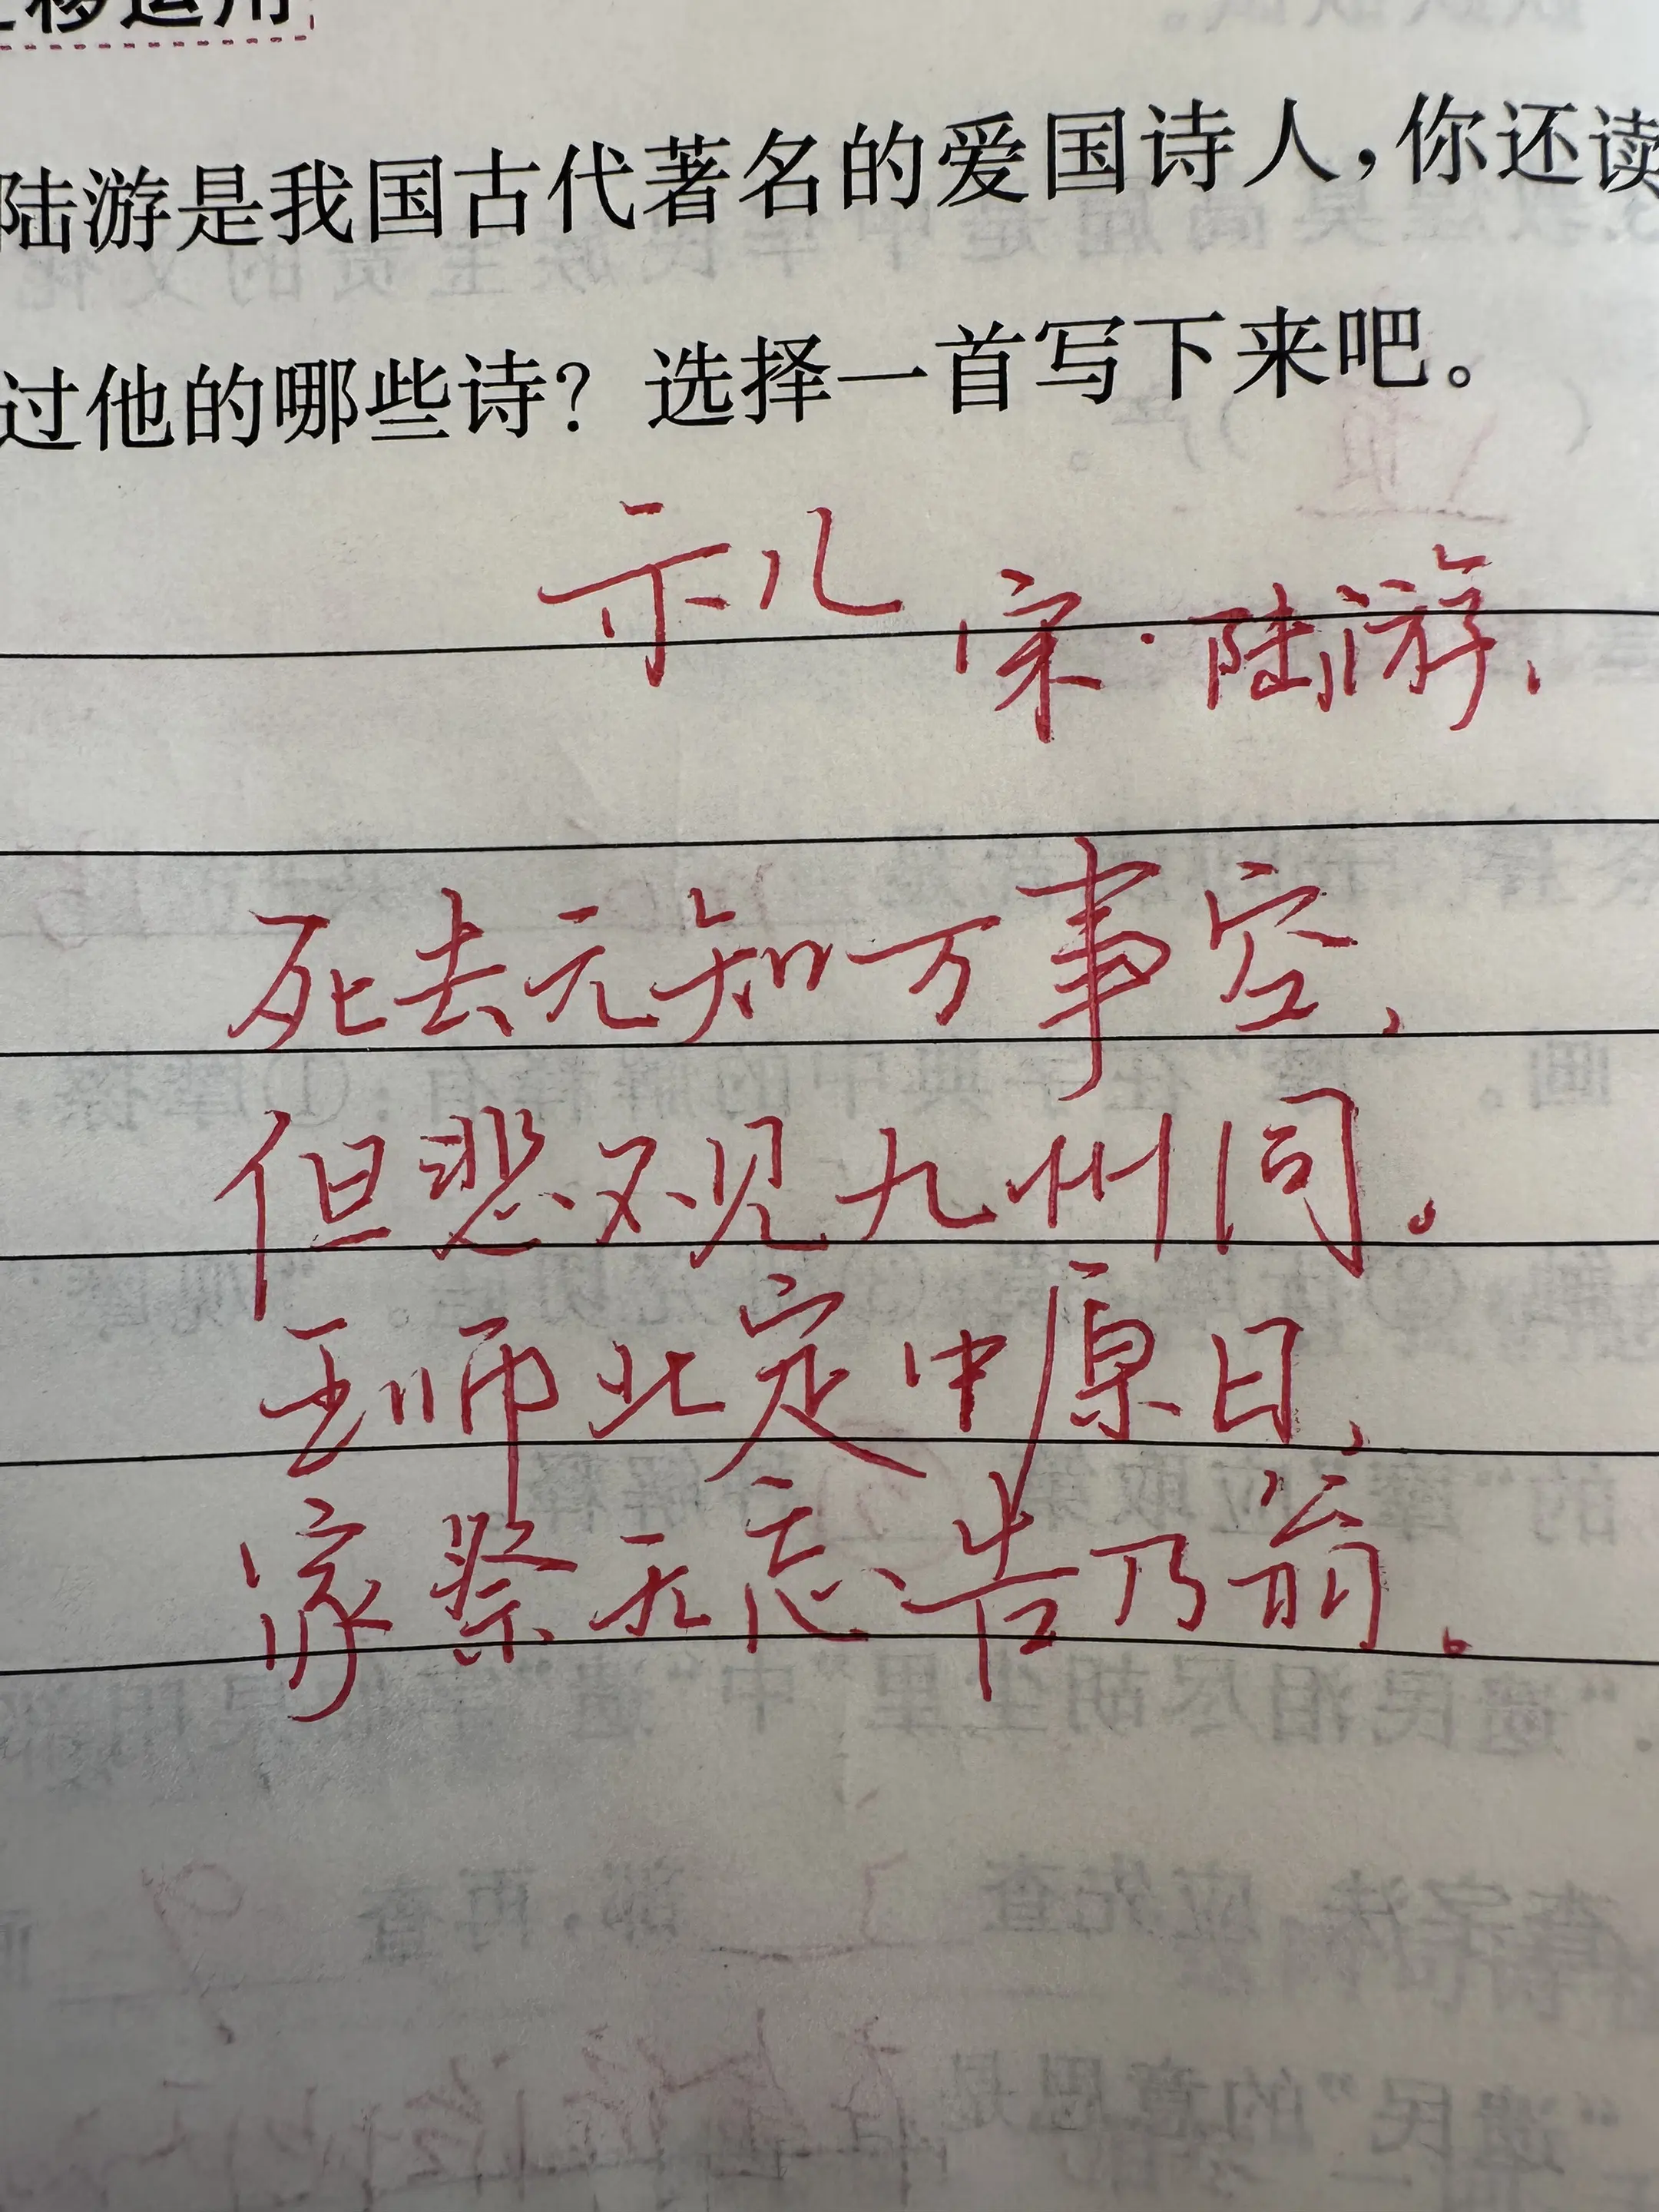 移运用
陆游是我国古代著名的爱国诗人，你还读
过他的哪些诗？选择一首写下来吧。
示儿
宋·陆游
死去元知万事空，
但悲不见九州同。
王师北定中原日，
家祭无忘告乃翁。